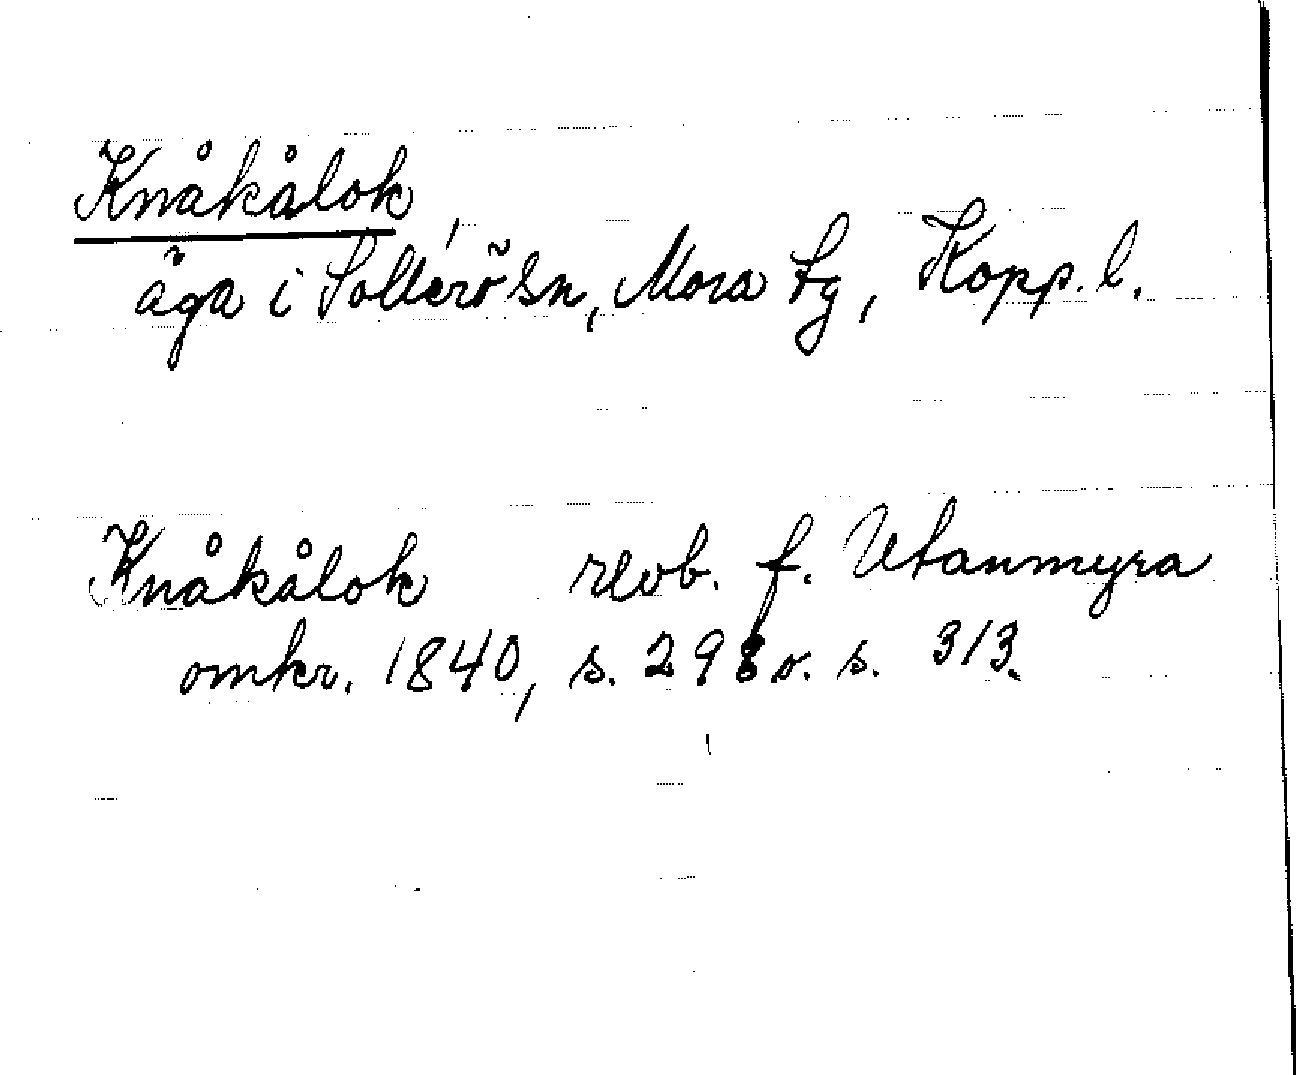 Knåkålok
äga i Sollerö sn, Mora tg, Kopp. l.
Knåkålok revb. f. Utanmyra
omkr. 1840, s. 298 o. s. 313.